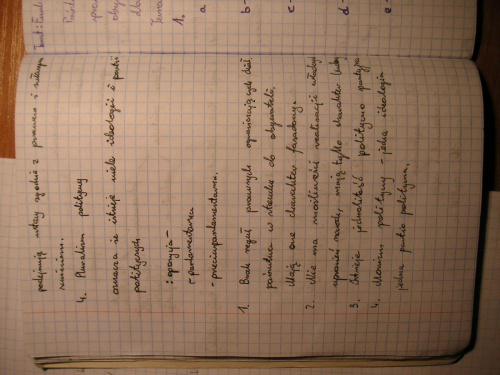 podejmują ustawy zgodnie z prawem i swoim
sumieniem.
4. Pluralizm polityczny
oznacza że istnieje wiele ideologii i partii
politycznych
: opozycja -
- parlamentarna
- pozaparlamentarna.
1. Brak reguł prawnych ograniczających dział.
państwa w stosunku do obywateli,
Mają one charakter fasadowy.
2. Nie ma możliwości realizacji władzy
przez naród, mają tylko charakter
3. Istnieje jednolitość polityczna
4. Monizm polityczny - jedna ideologia
jedna partia polityczna.
Temat:
1.
a
b -
c -
d -
e -